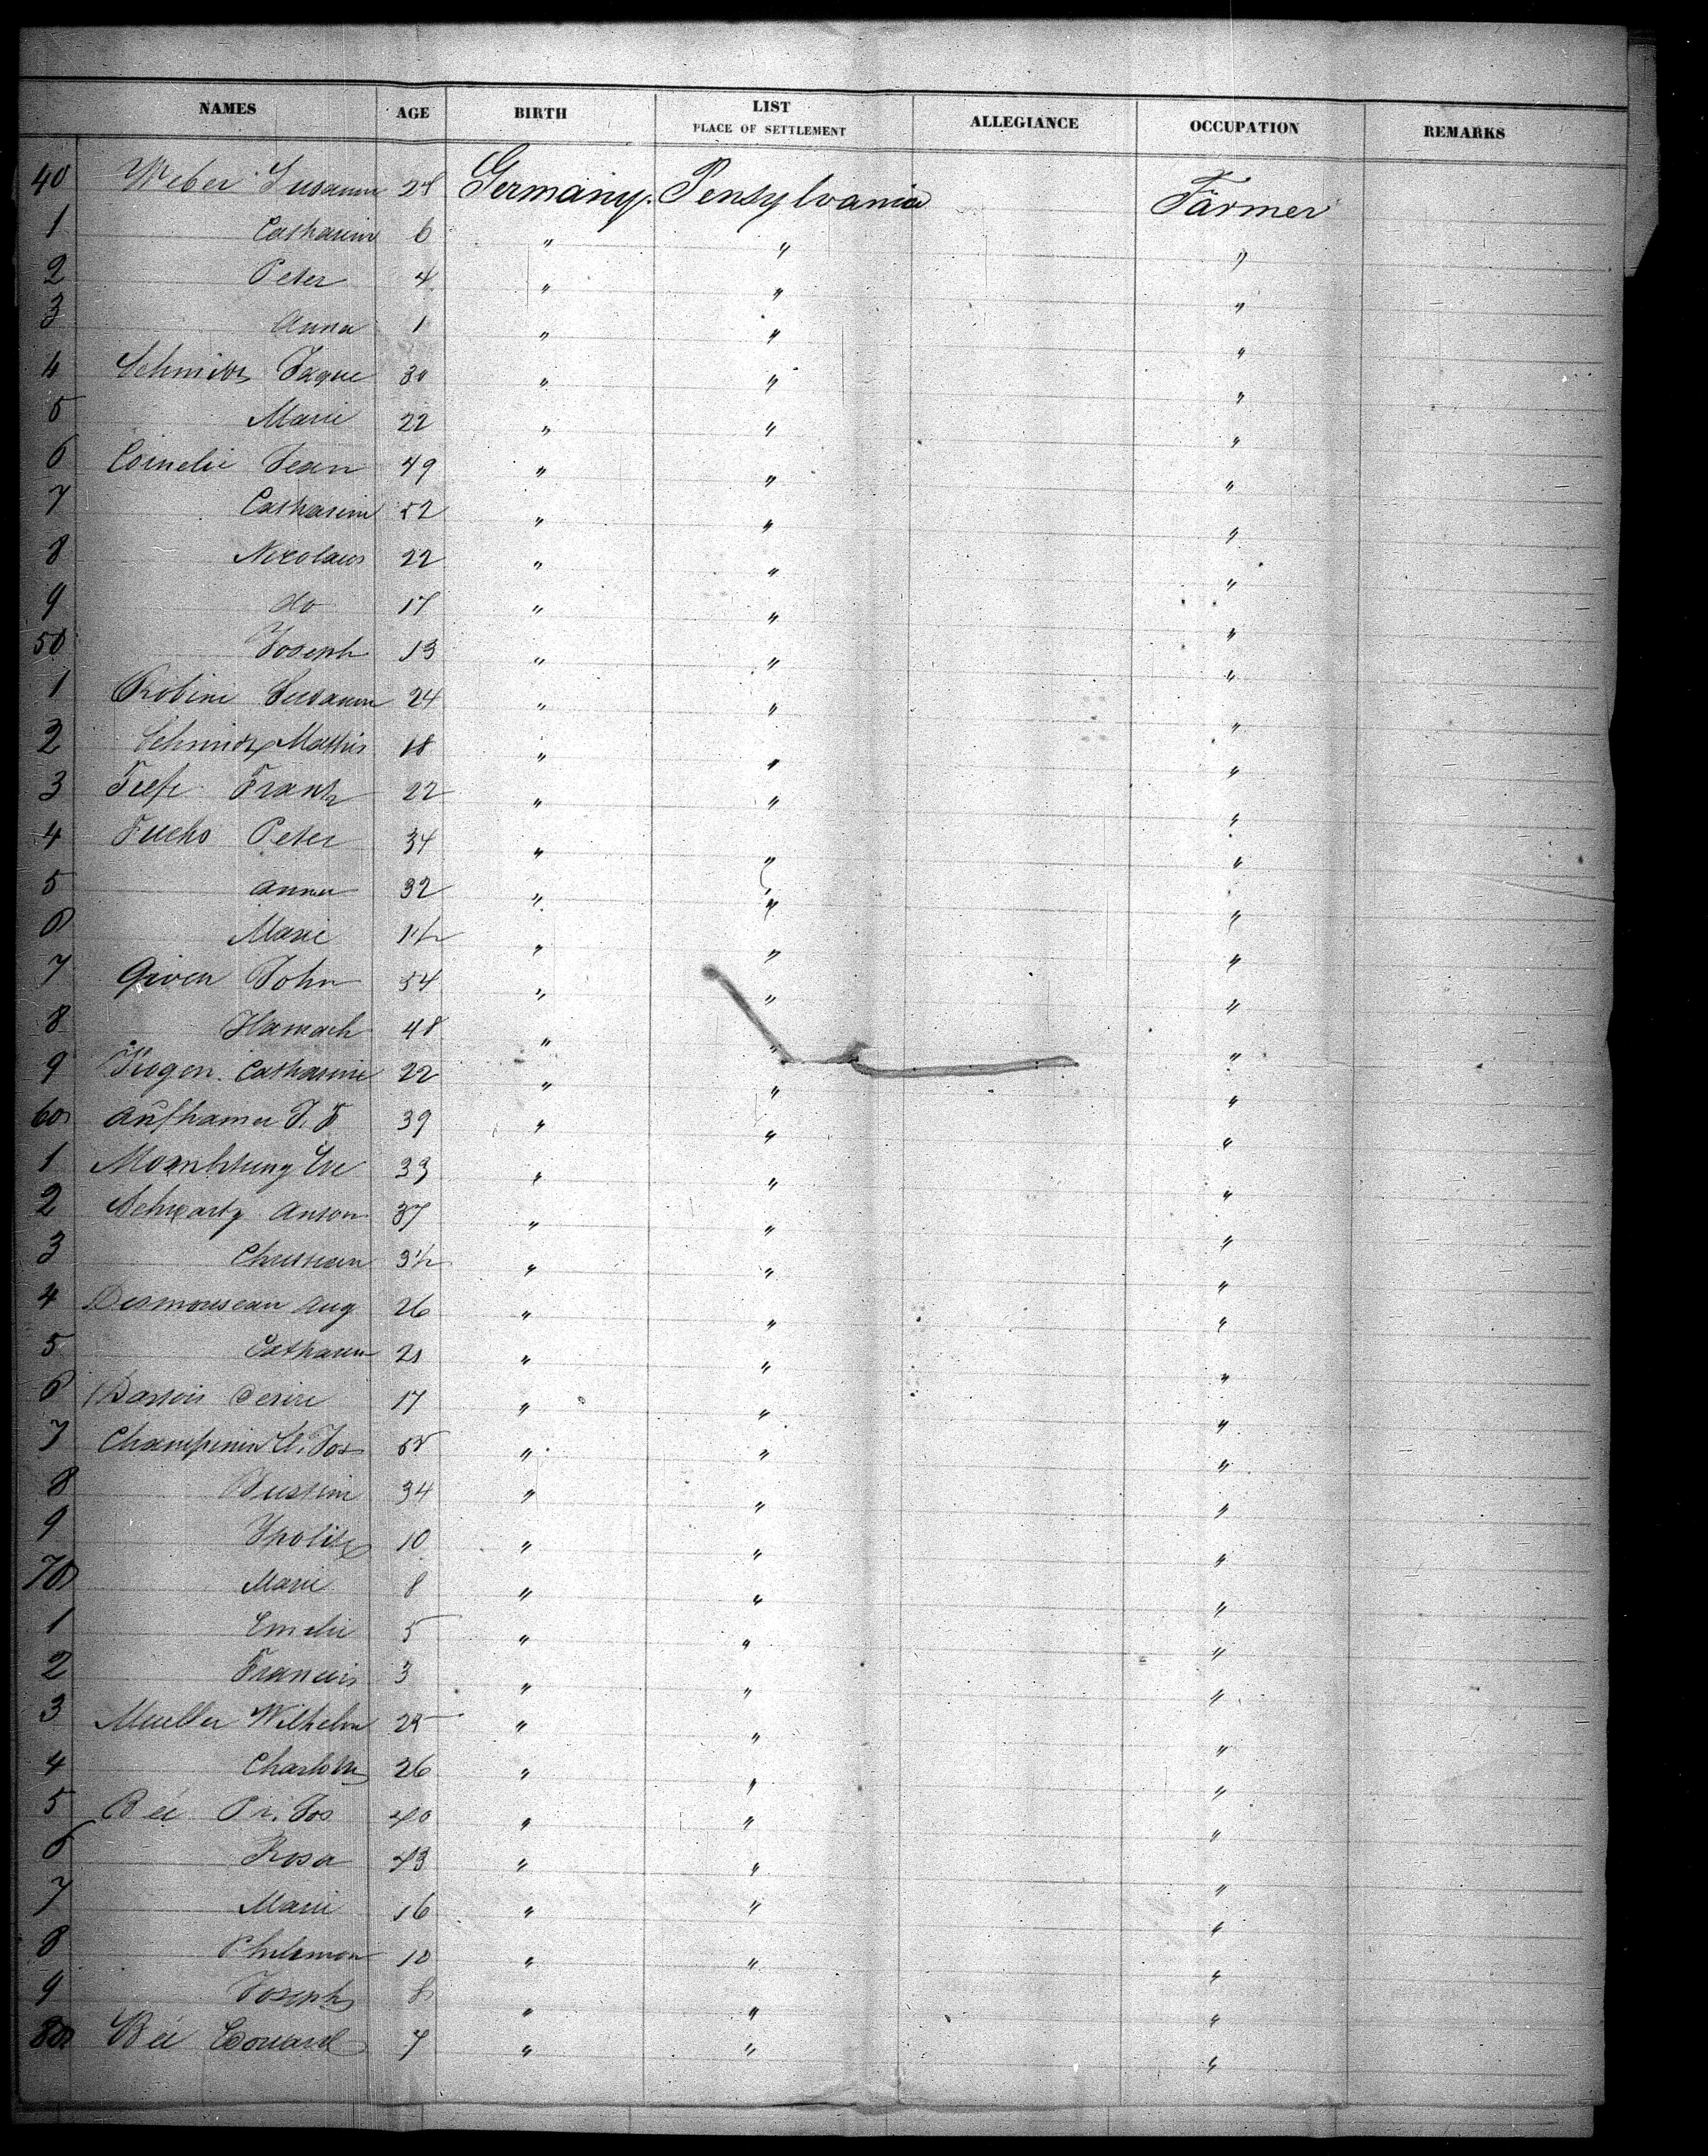 NAMES AGE BIRTH LIST PLACE OF SETTLEMENT ALLEGIANCE OCCUPATION REMARKS
40 Weber Susanna 28 Germany. Pensylvania Farmer
1 Catharine 6 " " "
2 Peter 4 " " "
3 Anna 1 " " "
4 Jaque 30 " " "
5 Marie 22 " " "
6 Cornelie Jean 49 " " "
7 Catharine 52 " " "
8 Nicolaus 22 " " "
9 do 17 " " "
50 Joseph 13 " " "
1 Robine Susanna 24 " " "
2 Schmidt Mathis 18 " " "
3 Frantz 22 " " "
4 Fuchs Peter 34 " " "
5 Anna 32 " " "
6 Marie 1½ " " "
7 Given John 54 " " "
8 48 " " "
9 Catharine 22 " " "
60 39 " " "
1 Eve 33 " " "
2 Schwartz Anton 37 " " "
3 Christian 3½ " " "
4 Desmouseau Aug 26 " " "
5 Catharin 21 " " "
6 Desire 17 " " "
7 Jos " " "
8 34 " " "
9 Ipolite 10 " " "
70 Marie 8 " " "
1 Emelie 5 " " "
2 Francois 3 " " "
3 Mueller Wilhelm 25 " " "
4 Charlotte 26 " " "
5 Bei Jos 40 " " "
6 Rosa 43 " " "
7 Marie 16 " " "
8 Philemon 10 " " "
9 Joseph 8 " " "
80 Bei Edouard 7 " " "